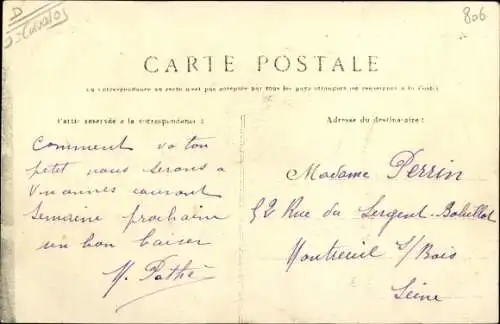 D
806
CARTE POSTALE
La Correspondance au recto n'est pas acceptée par tous les pays étrangers (se renseigner à la Poste)
Partie réservée à la correspondance :
Adresse du destinataire :
Comment va ton
petit nous serons a
Vincennes courant
Semaine prochaine
un bon baiser
M. Pathé
Madame Perrin
52 Rue du Sergent-Bobillot
Montreuil s/Bois
Seine